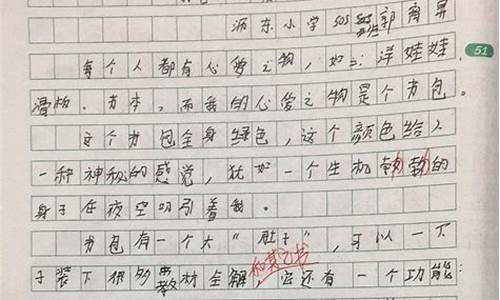 沂东小学505班郭育昇
51
每个人都有心爱之物，如：洋娃娃，
滑板、书本，而我的心爱之物是个书包。
这个书包全身绿色，这个颜色给人
一种神秘的感觉，犹如一个生机勃勃的
身子在夜空吸引着我。
书包有一个大“肚子”，可以一下
子装下很多教材全解和其它书它还有一个功能